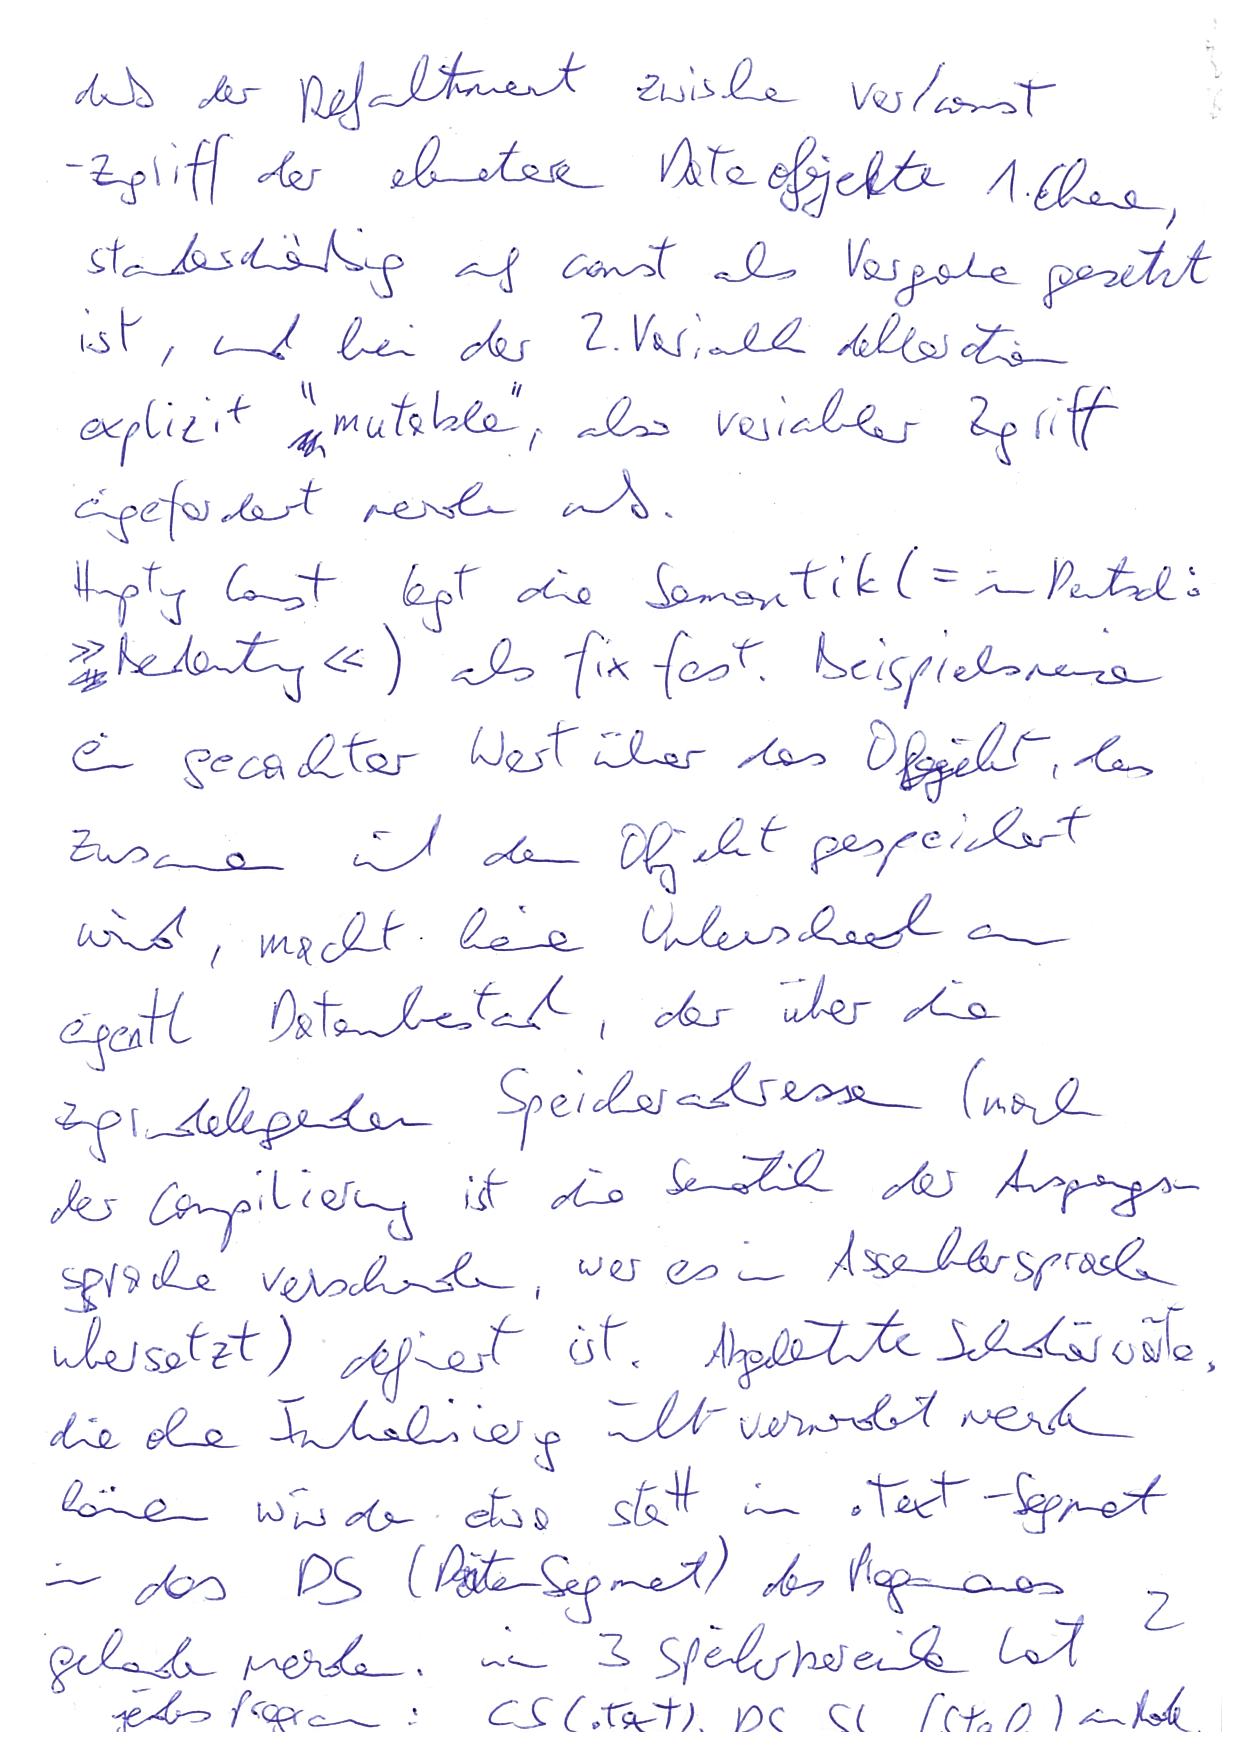 daß der Defaultment zwischen var/const
-Zugriff der elementaren Datenobjekte 1. Ebene,
standardmäßig auf const als Vorgabe gesetzt
ist, und bei der 2. Variablendeklaration
explizit "mutable", also variabler Zugriff
eingefordert werden muß.
Const legt die Semantik (= in Deutsch:
»Bedeutung«) als fix fest. Beispielsweise
ein gecachter Wert über das Objekt, das
zusammen mit dem Objekt gespeichert
wird, macht keinen Unterschied am
eigentl Datenbestand, der über die
zugrundelegenden Speicheradressen (nach
der Compilierung ist die Semantik der Ausgangs-
sprache verschwunden, wer es in Assemblersprache
übersetzt) definiert ist. Abgeleitete Sekundärwerte,
die die Initialisierung nicht verwendet werden
können würden etwa statt im .Text-Segment
in das DS (DatenSegment) des Programmes
geladen werden. 3 Speicherbereiche hat
jedes Programm: CS (.text), DS
2